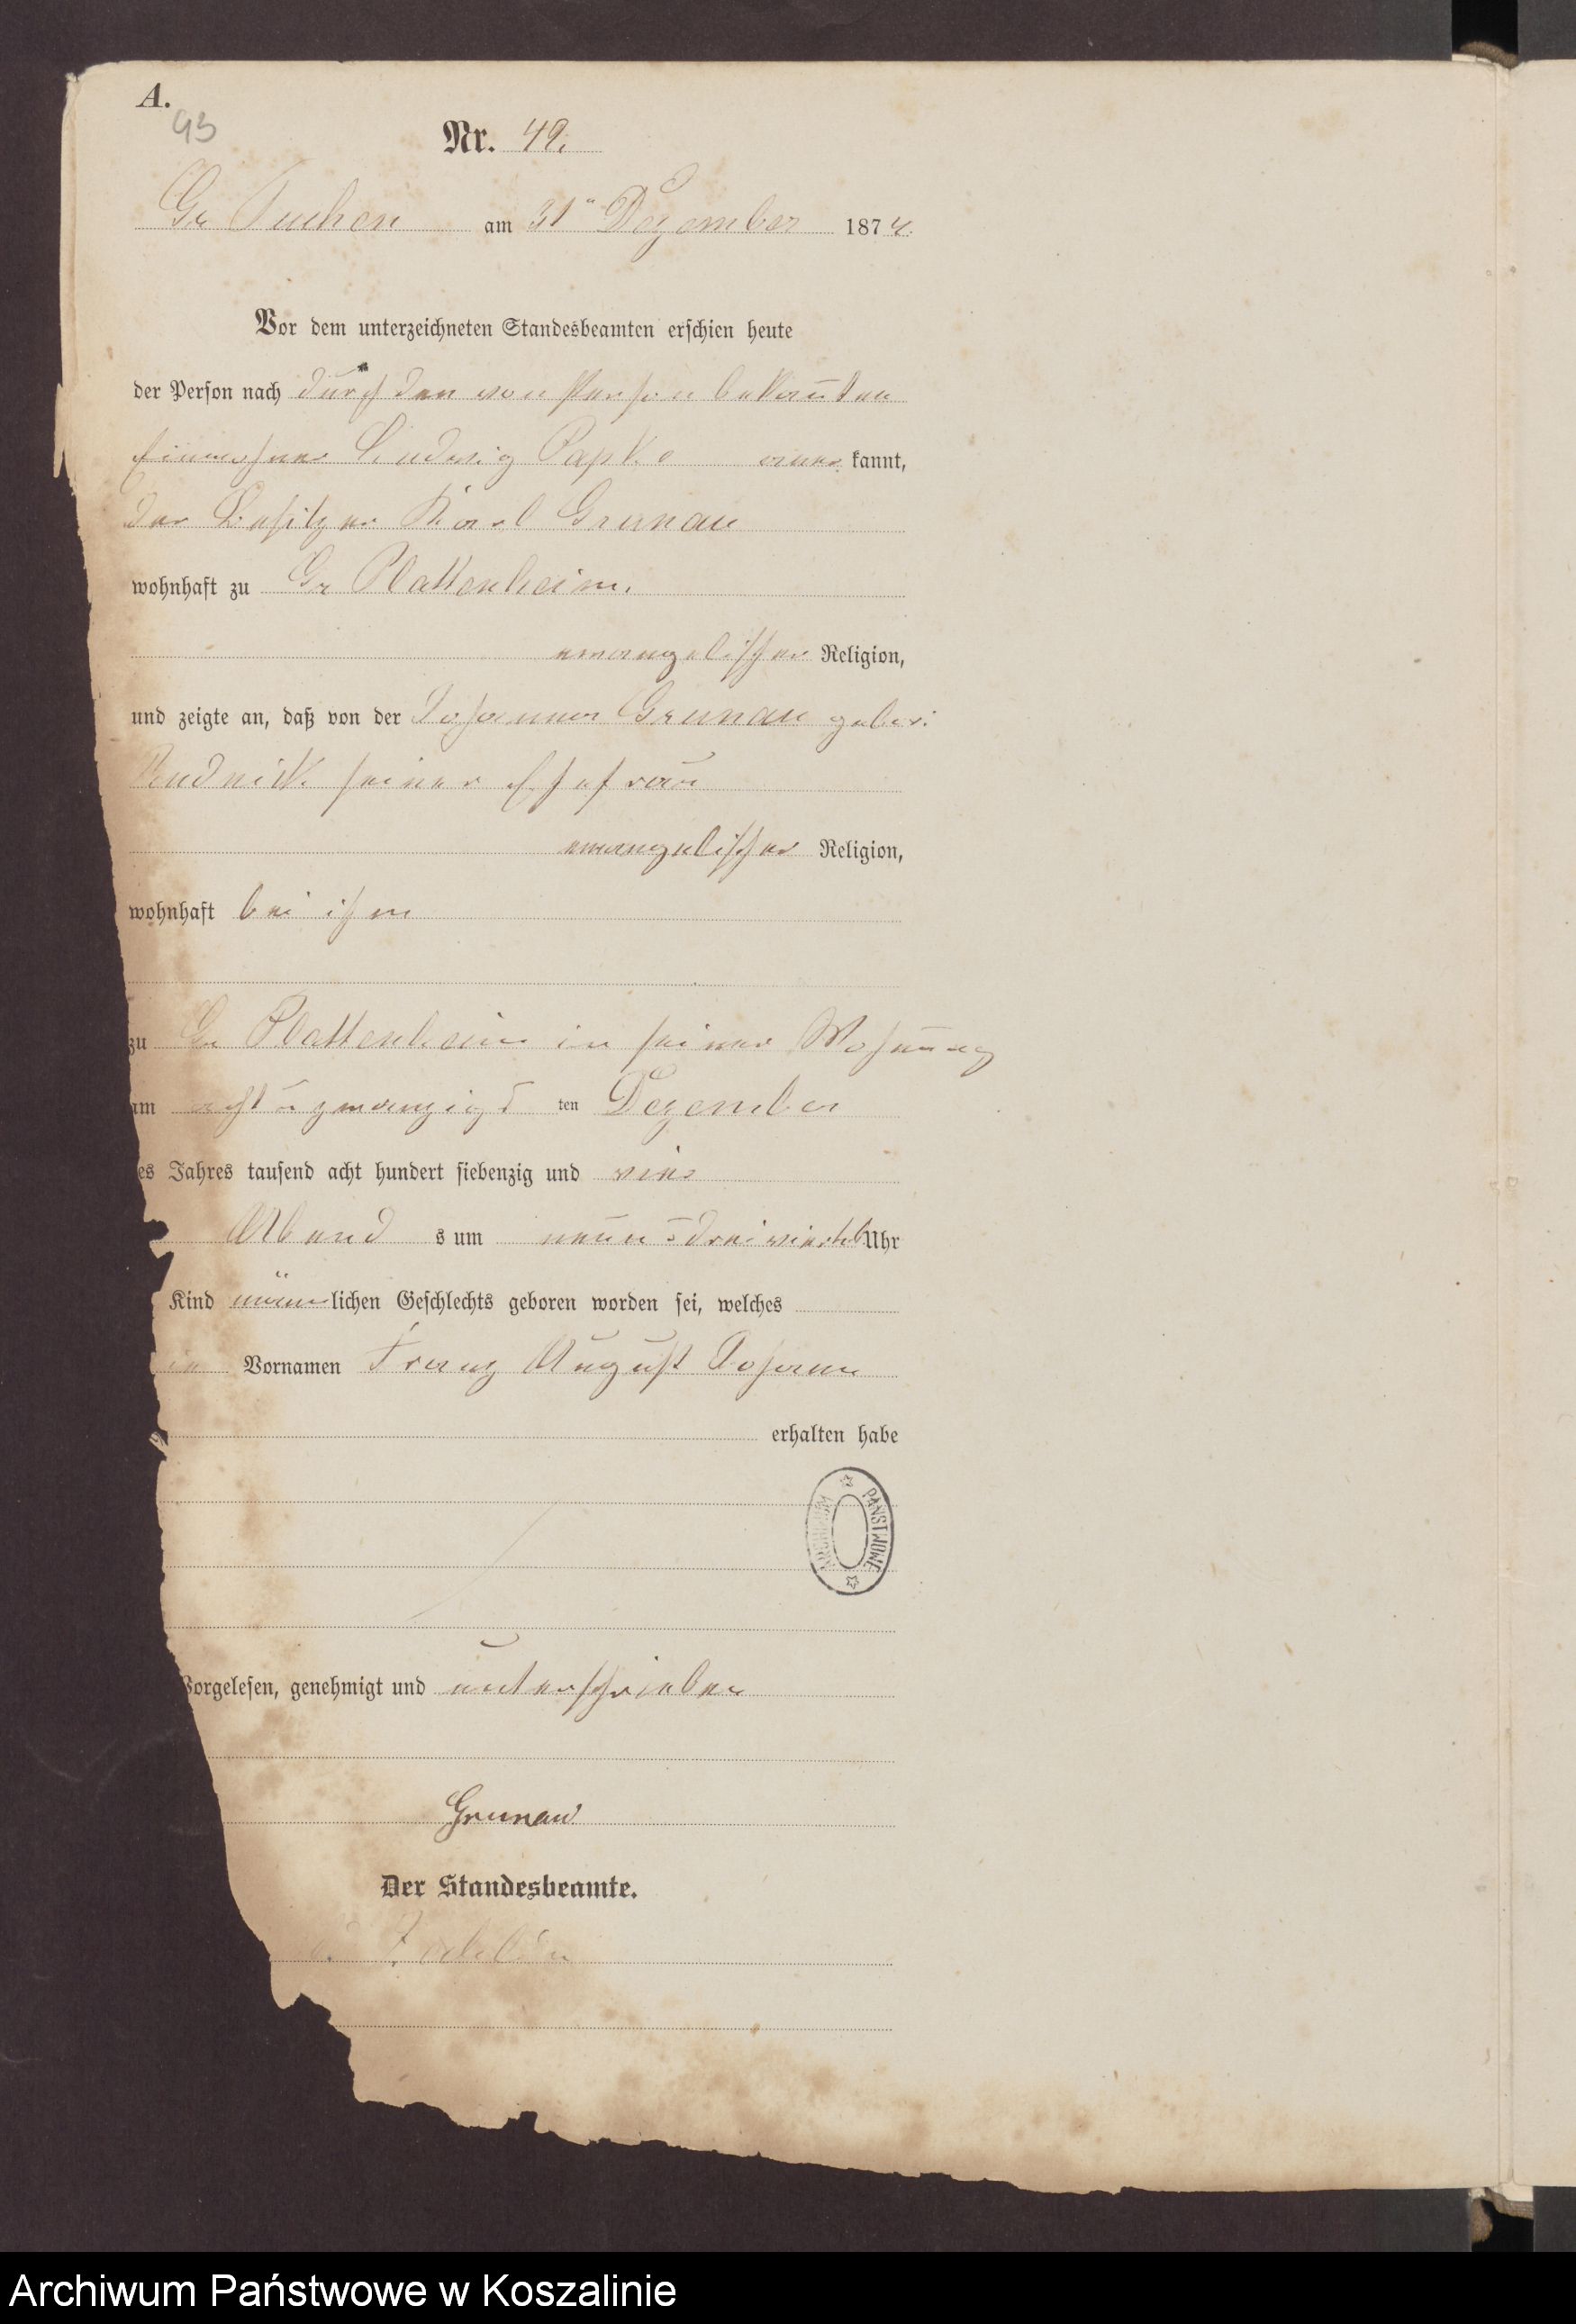 A.
93
Nr. 49.
Gr Tuchen am 31ten Dezember 1874.
Vor dem unterzeichneten Standesbeamten erschien heute
der Person nach durch den von Person bekannten
Einwohner Ludwig Papke aner kannt,
der Besitzer Karl Grunau
wohnhaft zu Gr Plattenheim.
evangelischer Religion,
und zeigte an, daß von der Johanna Grunau gebor:
Rudnick seiner Ehefrau
evangelischer Religion,
wohnhaft bei ihm
zu Gr Plattenheim in seiner Wohnung
am acht u zwanzigs ten Dezember
es Jahres tausend acht hundert siebenzig und vier
Abend s um neun dreiviertel Uhr
Kind männlichen Geschlechts geboren worden sei, welches
Vornamen Franz August Johann
erhalten habe
ARCHIWUM PAŃSTWOWE
Vorgelesen, genehmigt und unterschrieben
Grunau
Der Standesbeamte.
Archiwum Państwowe w Koszalinie